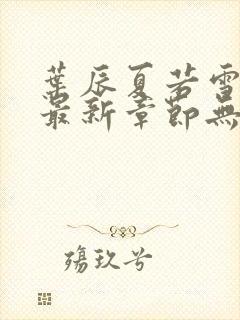 葉辰夏若雪
最新章節無
殤玖兮